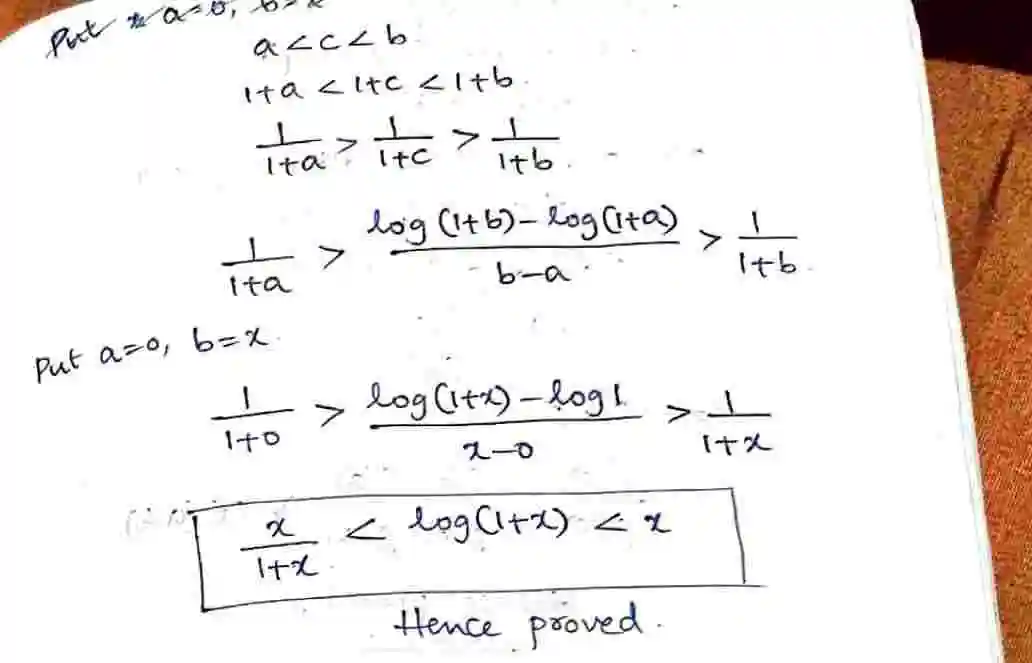 Put a=0, b=x
a<c<b.
1+a < 1+c < 1+b.
1/(1+a) > 1/(1+c) > 1/(1+b).
1/(1+a) > (log(1+b) - log(1+a))/(b-a) > 1/(1+b).
Put a=0, b=x.
1/(1+0) > (log(1+x) - log1)/(x-0) > 1/(1+x)
x/(1+x) < log(1+x) < x
Hence proved.